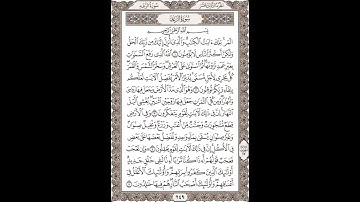 سورة الرعد
الجزء الثالث عشر
سورة الرعد
بسم الله الرحمن الرحيم
الٓمٓر تلك ءايت الكتب والذي أنزل إليك من ربك الحق
ولكن أكثر الناس لا يؤمنون ١ الله الذي رفع السموت
بغير عمد ترونها ثم استوى على العرش وسخر الشمس والقمر
كل يجري لأجل مسمى يدبر الأمر يفصل الأيت لعلكم
بلقاء ربكم توقنون ٢ وهو الذي مد الأرض وجعل فيها
روسي وأنهرا ومن كل الثمرت جعل فيها زوجين اثنين يغشي
اليل النهار إن في ذلك لأيت لقوم يتفكرون ٣ وفي الأرض
قطع متجورت وجنت من أعنب وزرع ونخيل صنوان
وغير صنوان يسقى بماء وحد ونفضل بعضها على بعض
في الأكل إن في ذلك لأيت لقوم يعقلون ٤ وإن تعجب
فعجب قولهم أءذا كنا تربا أءنا لفي خلق جديد
أولئك الذين كفروا بربهم وأولئك الأغلل في
أعناقهم وأولئك أصحب النار هم فيها خلدون ٥
٢٤٩